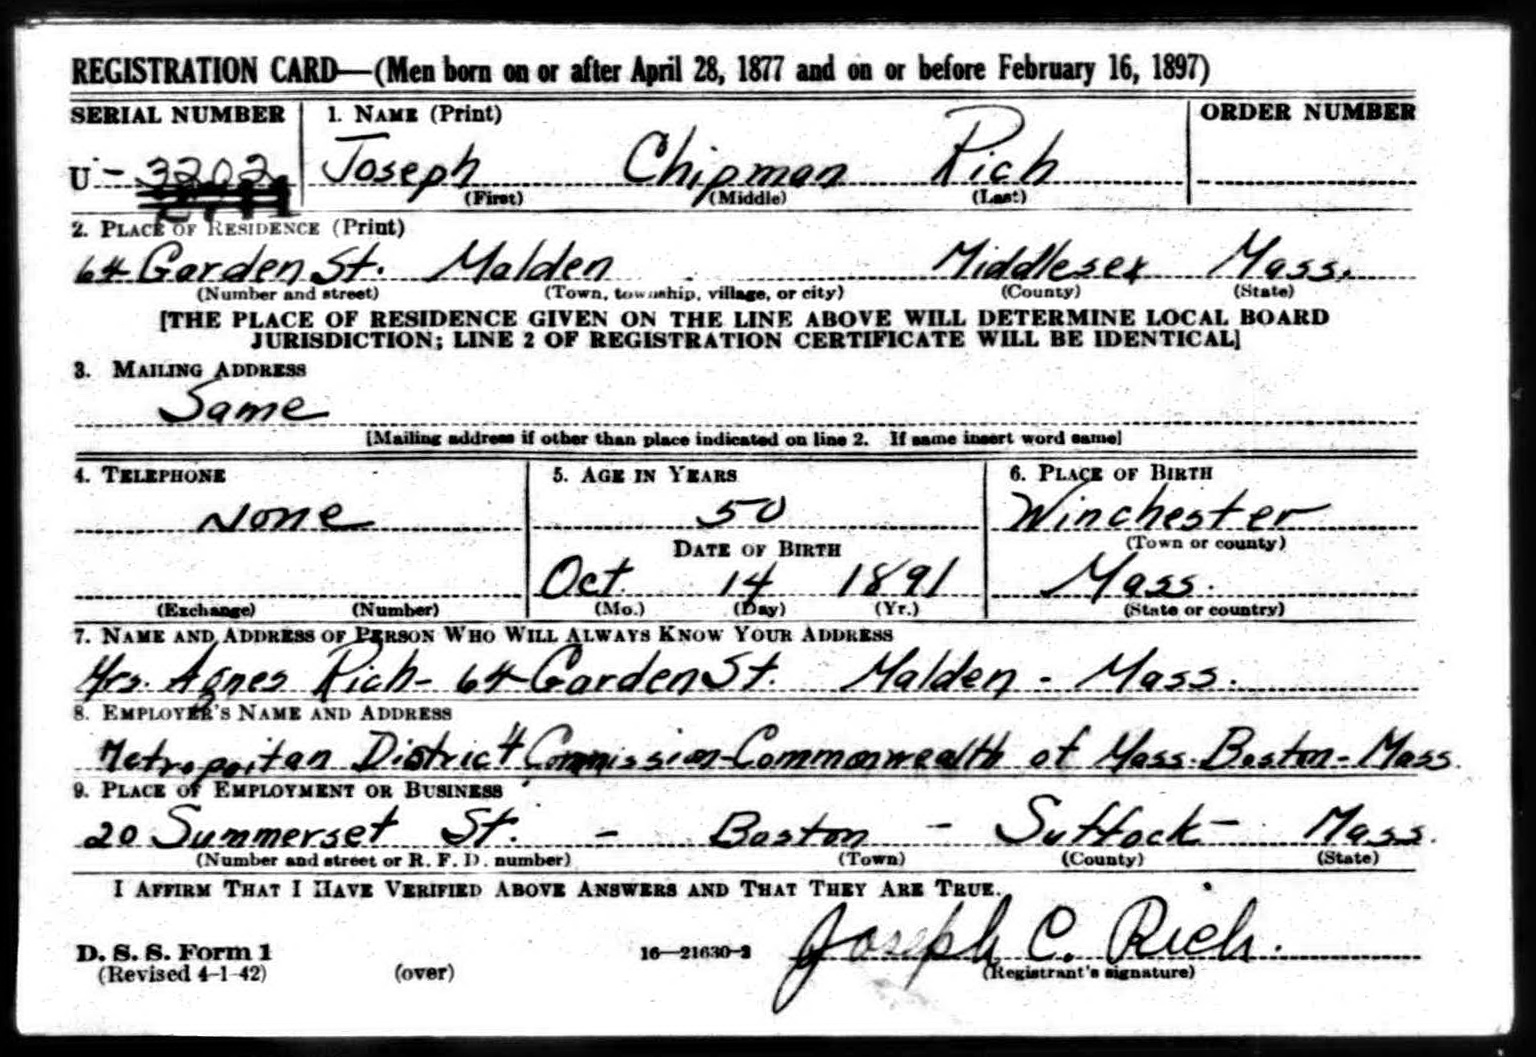 REGISTRATION CARD—(Men born on or after April 28, 1877 and on or before February 16, 1897)
SERIAL NUMBER 1. NAME (Print) ORDER NUMBER
U - 3202 Joseph Chipman Rich
(First) (Middle) (Last)
2. PLACE OF RESIDENCE (Print)
64 Garden St. Malden Middlesex Mass.
(Number and street) (Town, township, village, or city) (County) (State)
[THE PLACE OF RESIDENCE GIVEN ON THE LINE ABOVE WILL DETERMINE LOCAL BOARD
JURISDICTION; LINE 2 OF REGISTRATION CERTIFICATE WILL BE IDENTICAL]
3. MAILING ADDRESS
Same
[Mailing address if other than place indicated on line 2. If same insert word same]
4. TELEPHONE 5. AGE IN YEARS 6. PLACE OF BIRTH
None 50 Winchester
DATE OF BIRTH (Town or county)
Oct. 14 1891 Mass.
(Exchange) (Number) (Mo.) (Day) (Yr.) (State or country)
7. NAME AND ADDRESS OF PERSON WHO WILL ALWAYS KNOW YOUR ADDRESS
Mrs. Agnes Rich - 64 Garden St. Malden - Mass.
8. EMPLOYER'S NAME AND ADDRESS
Metropoitan District Commission - Commonwealth of Mass. Boston - Mass.
9. PLACE OF EMPLOYMENT OR BUSINESS
20 Summerset St. - Boston - Suffock - Mass.
(Number and street or R. F. D. number) (Town) (County) (State)
I AFFIRM THAT I HAVE VERIFIED ABOVE ANSWERS AND THAT THEY ARE TRUE.
Joseph C. Rich.
D. S. S. Form 1 16—21630-2
(Revised 4-1-42) (over) (Registrant's signature)